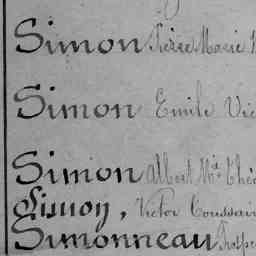 Simon Pierre Marie
Simon Emile Vic
Simon Albert Mie Thé
Simon, Victor Toussain
Simonneau Prospe